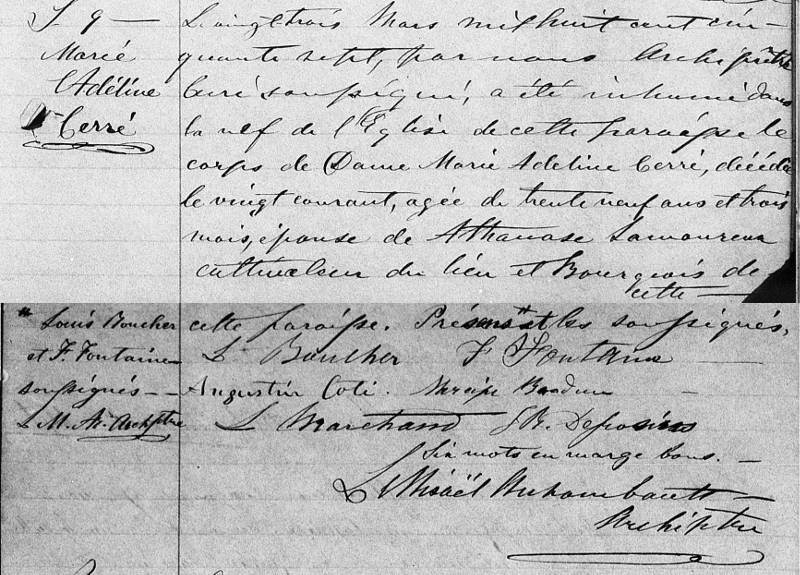 S 9 —
Marie
Adéline
Cerré
Le vingt trois Mars mil huit cent cin-
quante sept, par nous Archiprêtre
Curé soussigné, a été inhumé dans
la nef de l'Eglise de cette paroisse le
corps de Dame Marie Adeline Cerré, décédée
le vingt courant, agée de trente neuf ans et trois
mois, épouse de Athanase Lamoureux
cultivateur du lieu et Bourgeois de
cette —
* Louis Boucher
et F. Fontaine
soussignés —
L. M. A. Archiptre
cette paroisse. Présents * les soussignés,
L. Boucher F Fontaine
Augustin Coté. Narcisse
L Marchand
Six mots en marge bons. —
L. Misaël Archambault —
Archiptre